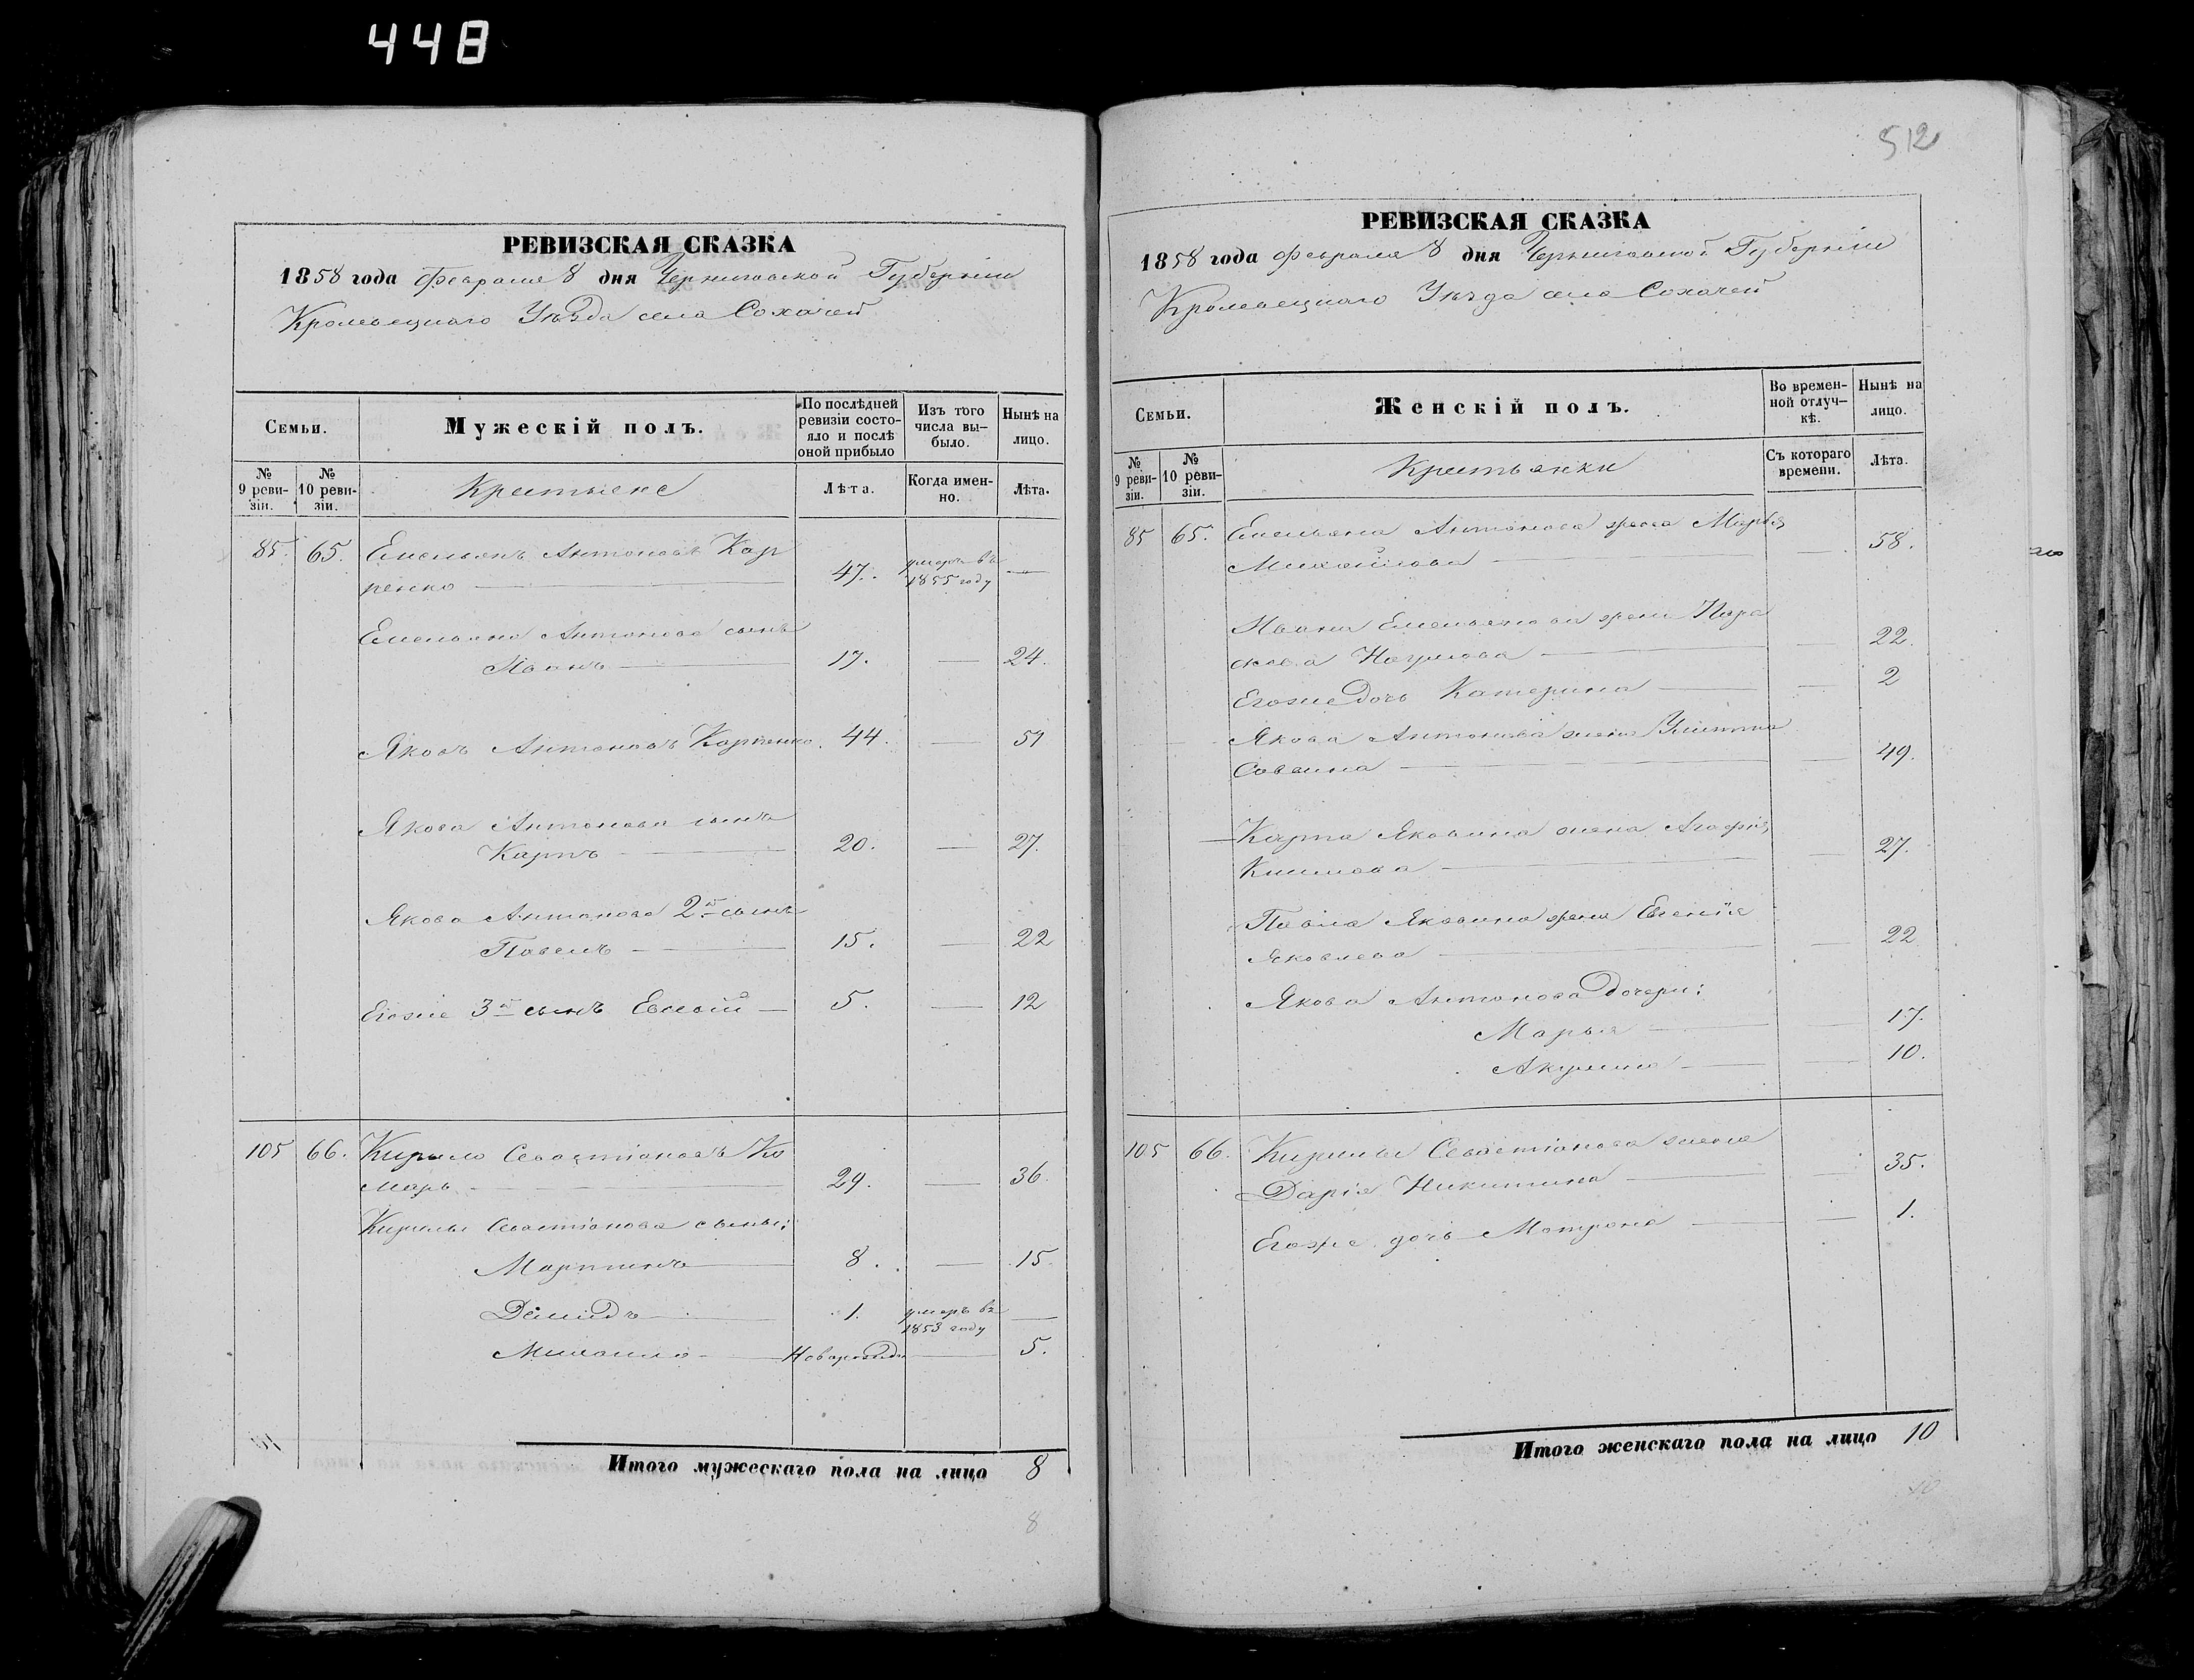 448
РЕВИЗСКАЯ СКАЗКА
1858 года Февраля 8 дня Черниговской Губернiи
Кролевецкаго Уѣзда села Сохачей
Семьи.
Мужескiй полъ.
По послѣдней ревизiи состо-
яло и послѣ оной прибыло
Изъ того числа вы-
было.
Нынѣ на лицо.
№ 9 реви-
зiи.
№ 10 реви-
зiи.
Крестьяне
Лѣта.
Когда имен-
но.
Лѣта.
85. 65. Емельянъ Антоновъ Кар
пенко 47. умеръ въ 1855 году —
Емельяна Антонова сынъ
Иванъ 17. — 24.
Яковъ Антоновъ Карпенко. 44. — 51
Якова Антонова сынъ
Карпъ 20. — 27.
Якова Антонова 2й сынъ
Павелъ 15. — 22
Егоже 3й сынъ Евсѣй 5. — 12
105 66. Кирило Севастiановъ Ко
маръ 29. — 36.
Кирилы Севастiанова сыны:
Мартинъ 8. — 15.
Демидъ 1. умеръ въ 1853 году —
Михаило Новорожден — 5.
Итого мужескаго пола на лицо 8
8
512
РЕВИЗСКАЯ СКАЗКА
1858 года Февраля 8 дня Черниговской Губернiи
Кролевецкаго Уѣзда села Сохачей
Семьи.
Женскiй полъ.
Во времен-
ной отлуч-
кѣ.
Нынѣ на лицо.
№ 9 реви-
зiи.
№ 10 реви-
зiи.
Крестьянки
Съ котораго времени.
Лѣта.
85 65. Емельяна Антонова жена Марѳа
Михайлова — 58.
Ивана Емельянова жена Пара
сковiя Наумова — 22.
Егоже дочь Катерина — 2
Якова Антонова жена Улитта
Саввина — 49.
Карпа Яковлина жена Агафiя
Климова — 27.
Павла Яковлина жена Евгенiя
Яковлева — 22
Якова Антонова дочери:
Марья — 17.
Акулина — 10.
105 66. Кирилы Севастiанова жена
Дарiя Никитина — 35.
Егоже дочь Матрона — 1.
Итого женскаго пола на лицо 10
10